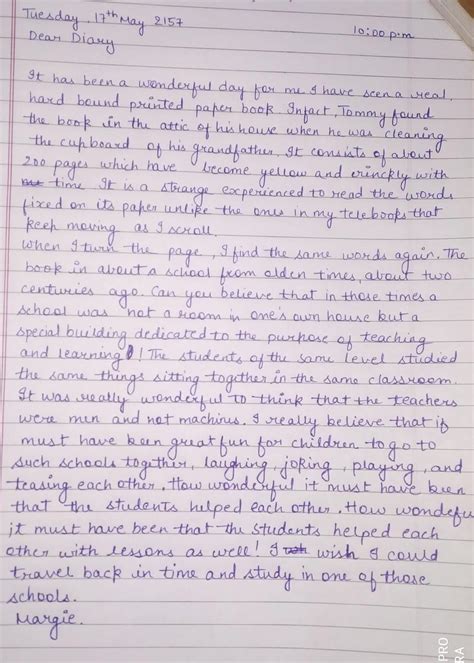 Tuesday, 17th May 2157
10:00 p.m
Dear Diary
It has been a wonderful day for me I have seen a real,
hard bound printed paper book. Infact, Tommy found
the book in the attic of his house when he was cleaning
the cupboard of his grandfather. It consists of about
200 pages which have become yellow and crinckly with
time. It is a strange experienced to read the words
fixed on its paper unlike the ones in my telebooks that
keep moving as I scroll.
When I turn the page, I find the same words again. The
book in about a school from olden times, about two
centuries ago. Can you believe that in those times a
school was not a room in one's own house but a
special building dedicated to the purpose of teaching
and learning! The students of the same level studied
the same things sitting together in the same classroom.
It was really wonderful to think that the teachers
were men and not machines. I really believe that it
must have been great fun for children to go to
such schools together, laughing, joking, playing, and
teasing each other. How wonderful it must have been
that the students helped each other. How wondeful
it must have been that the students helped each
other with lessons as well! I wish I could
travel back in time and study in one of those
schools.
Margie.
PRO
RA